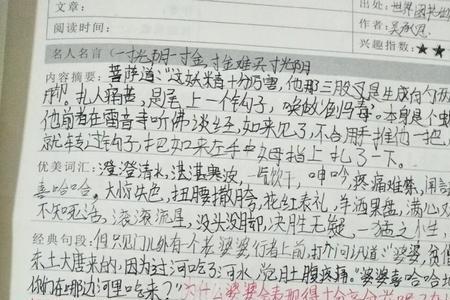 文章：
出处：世界图书出
阅读时间：
作者：吴承恩
兴趣指数：★★
名人名言 一寸光阴一寸金，寸金难买寸光阴
内容摘要：菩萨道：“这妖精十分厉害，他那三股叉是生成的
脚。扎人痛甚，是尾上一个钩子，唤做“倒马毒”。本身是个
他前者在雷音寺听佛谈经，如来见了，不合用手推他一把，
就转过钩子，把如来左手中拇指上扎了一下。
优美词汇：澄澄清水，湛湛寒波，一气饮干，呻吟，疼痛难禁，
喜哈哈。大惊失色，扭腰撒胯，花红表礼，羊酒果盘，满心
不知死活，滚滚流星，没头没脚，决胜无疑，
经典句段：但只见门儿外有个老婆婆，行者上前，打个问讯道：“婆婆，贫僧
东土大唐来的，因为过河吃了河水，觉肚腹疼痛。”婆婆喜哈哈地
你们在那边河里吃来？”